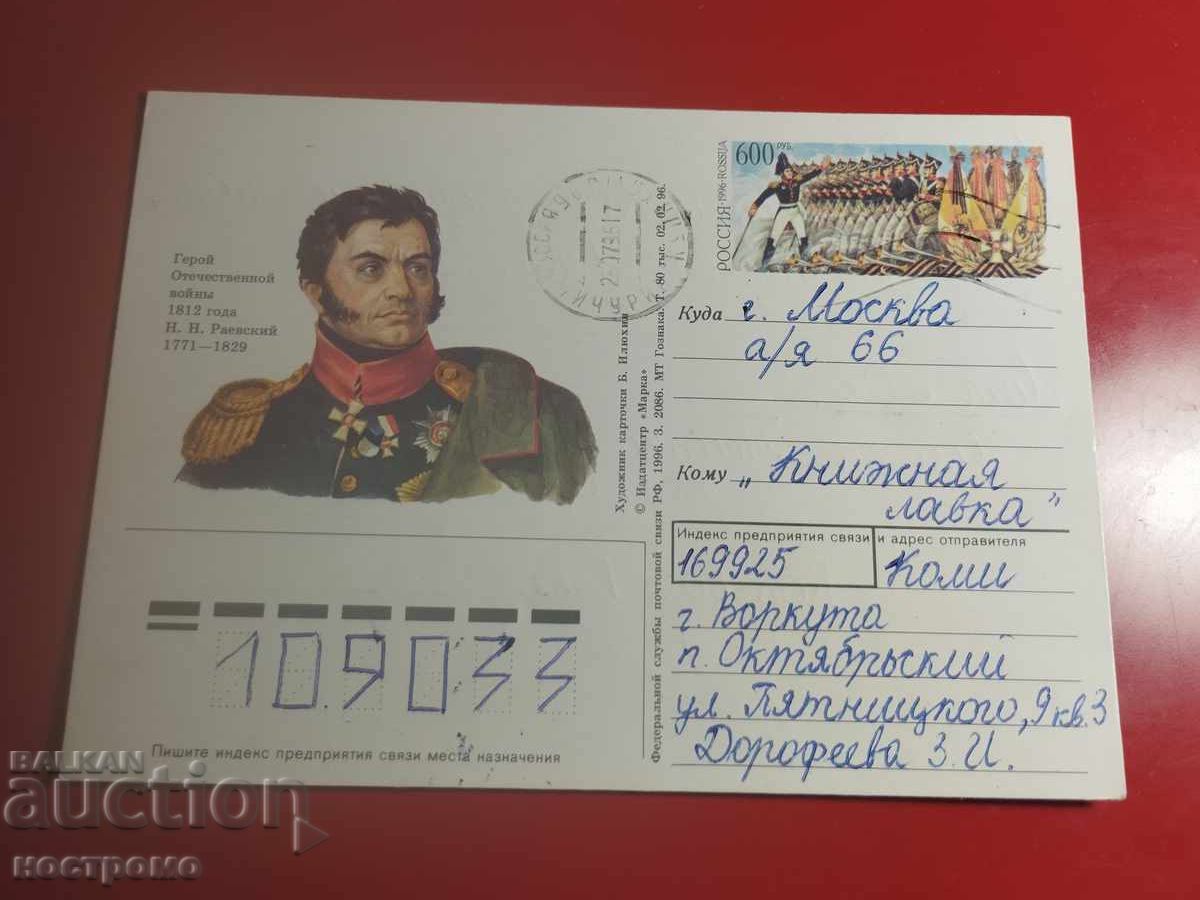 Герой
Отечественной
войны
1812 года
Н. Н. Раевский
1771—1829
Художник карточки Б. Илюхин
© Издатцентр «Марка»
Федеральной службы почтовой связи РФ, 1996. З. 2086. МТ Гознака. Т. 80 тыс. 02.02.96.
600 РУБ.
РОССИЯ·1996·ROSSIJA
Куда г. Москва
а/я 66
Кому „Книжная
лавка"
Индекс предприятия связи и адрес отправителя
169925 Коми
г. Воркута
п. Октябрьский
ул. Пятницкого, 9 кв. 3
Дорофеева З. И.
109033
Пишите индекс предприятия связи места назначения
BALKAN
auction
костромо